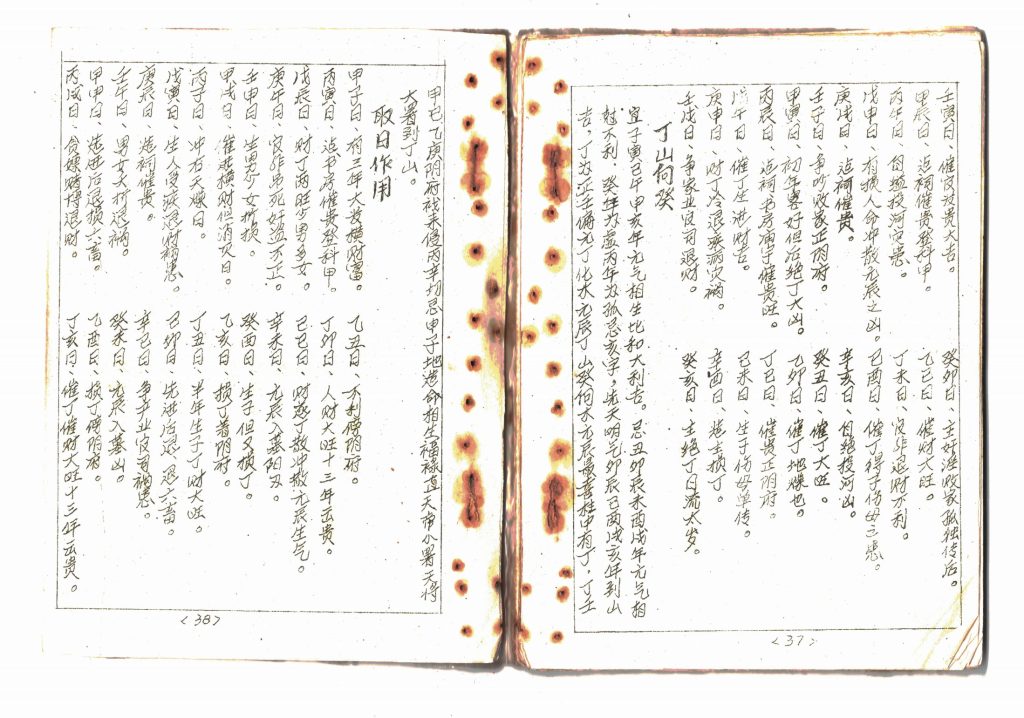 壬寅日、催官放贵大吉。 癸卯日、主奸淫败家孤独传后。
甲辰日、造祠催贵登科甲。 乙巳日、催财大旺。
丙午日、自缢投河官患。 丁未日、官非退财不利。
戊申日、有损人命冲散元辰之凶。 己酉日、催丁得子伤母三患。
庚戌日、造祠催贵。 辛亥日、自缢投河凶。
壬子日、争吵败家正阴府。 癸丑日、催丁大旺。
甲寅日、初年好但后绝丁大凶。 乙卯日、催丁地爆也。
丙辰日、造祠书房庙宇催贵旺。 丁巳日、催贵正阴府。
戊午日、催丁生进财吉。 己未日、生子伤母单传。
庚申日、财丁冷退瘟病灾祸。 辛酉日、葬主损丁。
壬戌日、争家业官司退财。 癸亥日、主绝丁日流太岁。
丁山向癸
宜子寅巳甲亥年元气相生比和大利吉。忌丑卯辰未酉戌年元气相
不利。癸年为孟丙年为孤忌亥字，先天明气卯辰巳酉戌亥年到山
吉，丁为正壬偏元丁化木元辰丁山癸向木元辰喜柱中有丁，丁壬
<37>
甲己乙庚阴府戌未侵丙辛切忌甲子地造命相生福禄直大帝小署天将
大署到丁山。
取日作用
甲子日、有三年大发横财富。 乙丑日、不利傍阴府。
丙寅日、造书房催贵登科甲。 丁卯日、人财大旺十三年云贵。
戊辰日、财丁两旺少男多女。 己巳日、财丞丁散冲散元辰生气。
庚午日、官非弟死奸盗不正。 辛未日、元辰入墓阳刃。
壬申日、生男少女折损。 癸酉日、生子但又损丁。
甲戌日、催进横财但消灭日。 乙亥日、损丁着阴府。
丙子日、冲有大爆日。 丁丑日、半年生子丁财大旺。
戊寅日、生人口退财祸患。 己卯日、先进后退退六畜。
庚辰日、造祠催贵。 辛巳日、争产业官司祸患。
壬午日、男女大折退祸。 癸未日、元辰入墓凶。
甲申日、先进后退损六畜。 乙酉日、损丁傍阴府。
丙戌日、贪嫖财博退财。 丁亥日、催丁催财大旺十三年云贵。
<38>